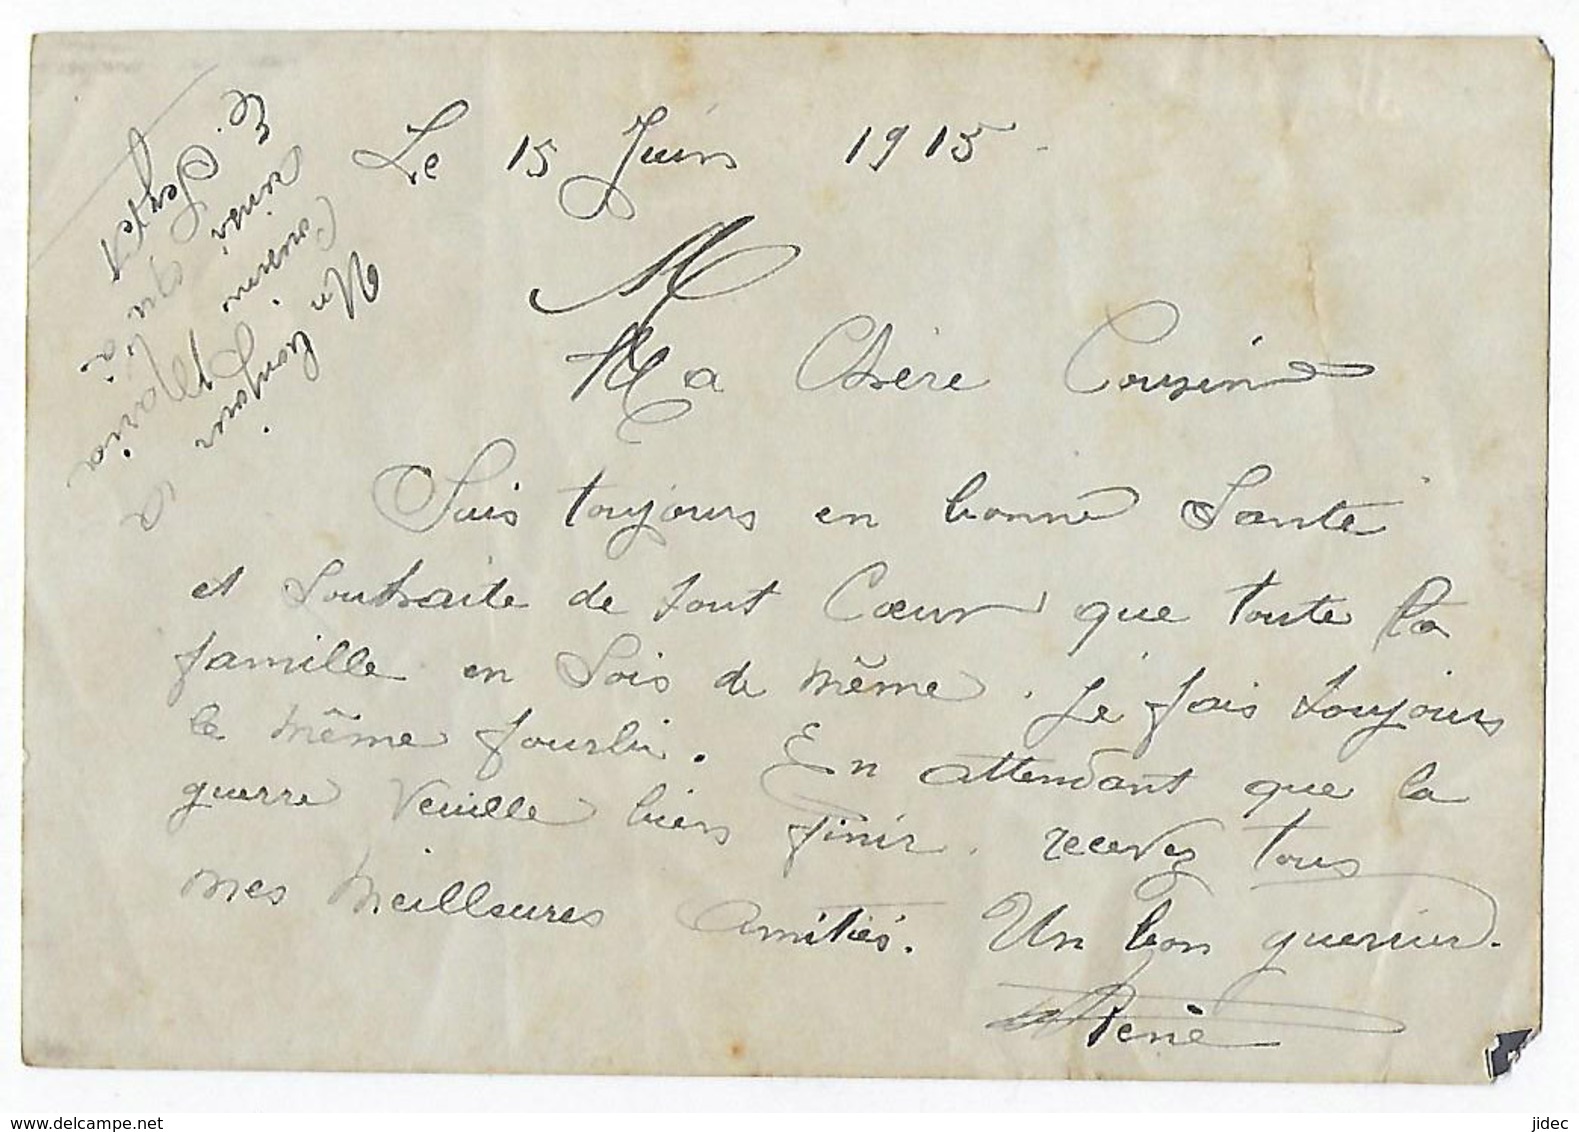 Le 15 Juin 1915
Ma Chère Cousine
Suis toujours en bonne Santé
et Souhaite de tout Cœur que toute la
famille en Sois de même. Je fais toujours
le même fourbi. En attendant que la
guerre veuille bien finir. recevez tous
mes meilleures amitiés. Un bon guerrier.
René
Un bonjour a
Cousine Maria
ainsi qu'à
E.
www.delcampe.net
jidec